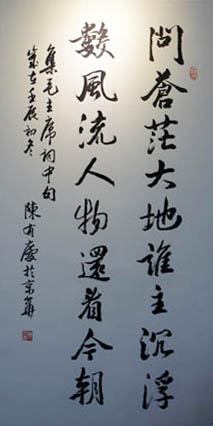 問蒼茫大地誰主沉浮
數風流人物還看今朝
集毛主席詞中句
歲在壬辰初冬
陳有慶於京華